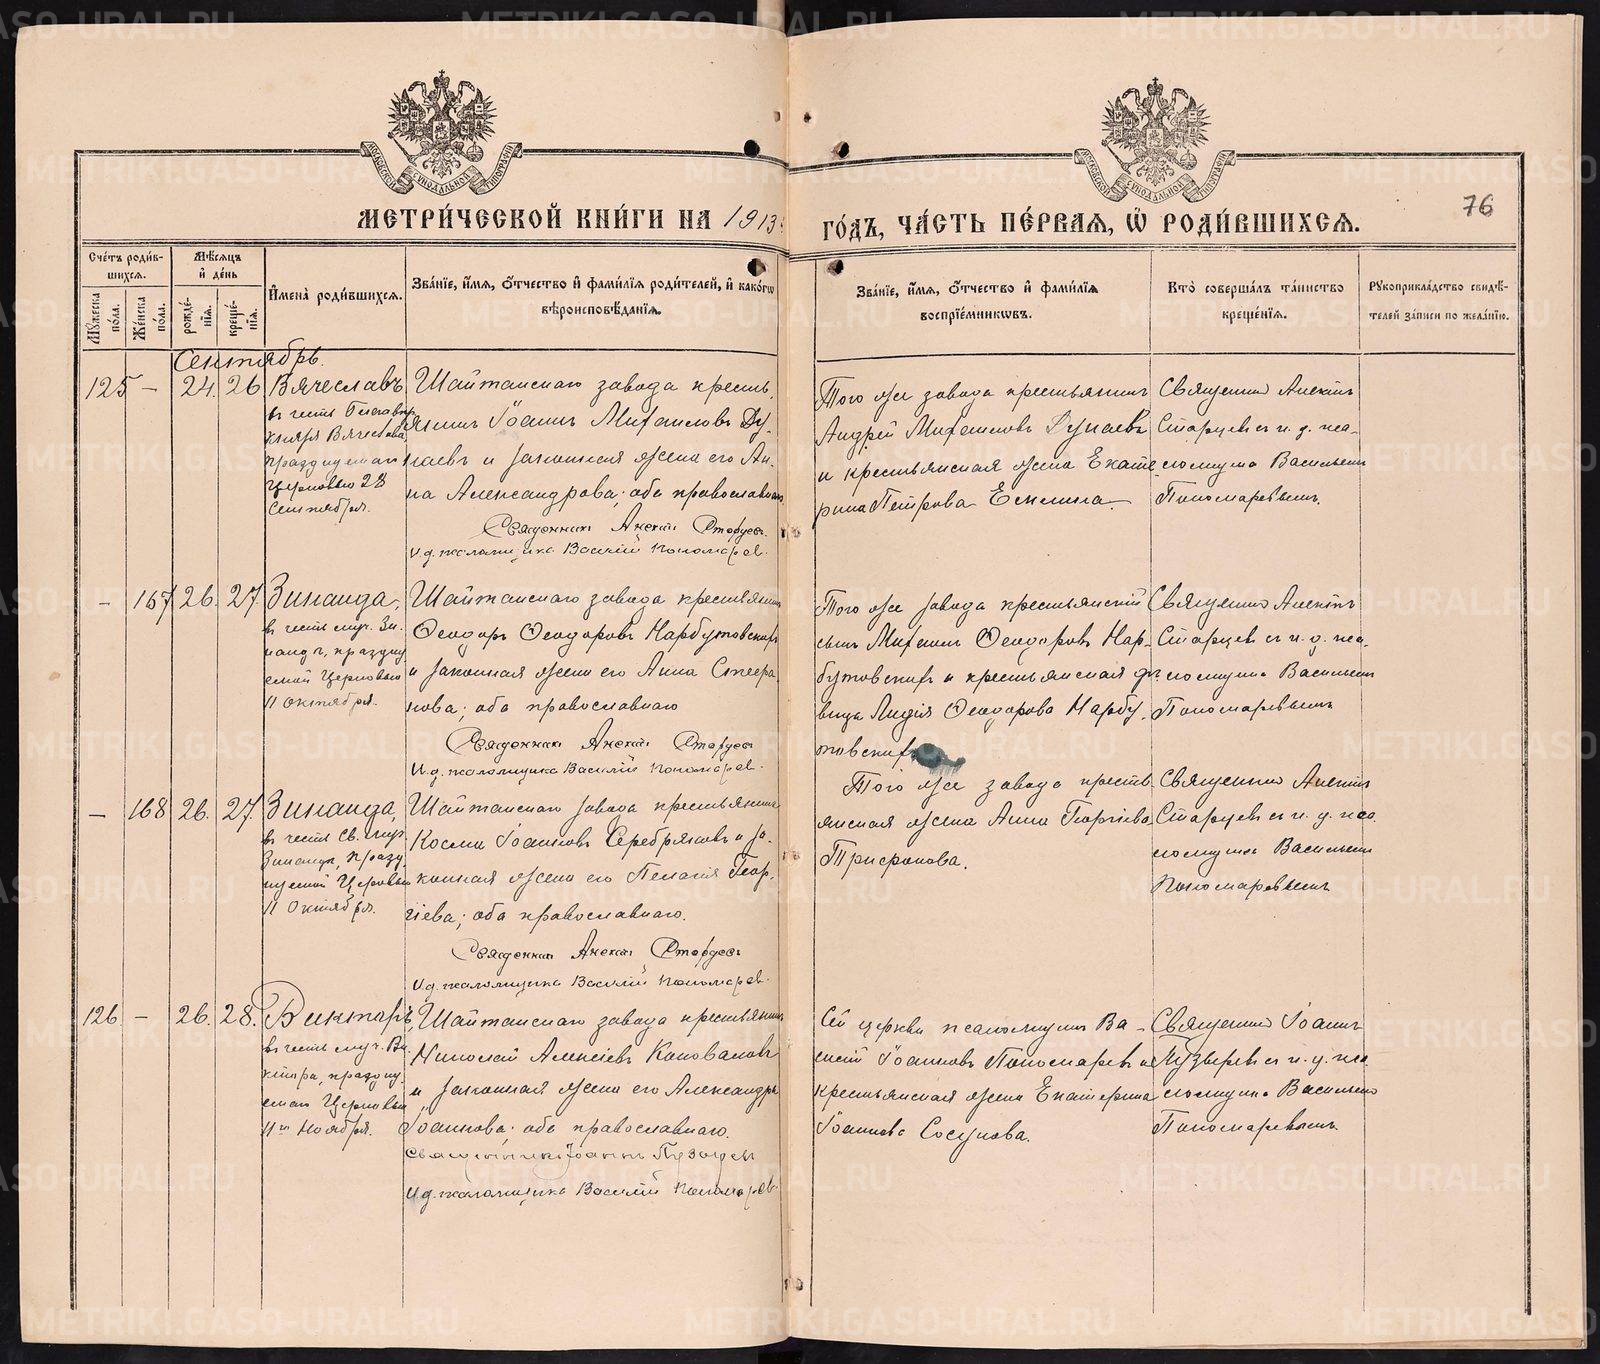 МЕТРИ́ЧЕСКОЙ КНИ́ГИ НА 1913
ГО́ДЪ, ЧА́СТЬ ПЕ́РВАѦ, Ѡ҆ РОДИ́ВШИХСѦ.
76
Сче́тъ роди́в-
шихсѧ.
Мѣ́сѧцъ
и҆ де́нь
Мꙋ́жеска
по́ла.
Же́нска
по́ла.
рожде́-
нїѧ.
креще́-
нїѧ.
И҆мена̀ роди́вшихсѧ.
Зва́нїе, и҆́мѧ, ѻ҆́тчество и҆ фами́лїѧ роди́телей, и҆ како́гѡ
вѣроисповѣ́данїѧ.
Зва́нїе, и҆́мѧ, ѻ҆́тчество и҆ фами́лїѧ
воспрїе́мникѡвъ.
Кто̀ соверша́лъ та́инство
креще́нїѧ.
Рꙋкоприкла́дство свидѣ́-
телей за́писи по жела́нїю.
Сентябрь.
125 - 24. 26 Вячеславъ
въ честь
князя Вячеслава
празднуемаго
Церковью 28
Сентября.
Шайтанскаго завода кресть-
янинъ Іоаннъ Михаиловъ Ду-
наевъ и законная жена его Ан-
на Александрова; оба православнаго
Священникъ Алексій Старцевъ
И.д. псаломщика Василій Пономарев.
Того же завода крестьянинъ
Андрей Михаиловъ Дунаевъ
и крестьянская жена Екате-
рина Петрова Еснина.
Священникъ Алексій
Старцевъ съ и. д. пса-
ломщика Васильемъ
Пономаревымъ.
- 167 26. 27 Зинаида,
въ честь муч. Зи-
наиды, праздну
емой Церковью
11 Октября.
Шайтанскаго завода крестьянинъ
Ѳеодоръ Ѳеодоровъ Нарбутовскихъ
и законная жена его Анна Стефа
нова; оба православнаго
Священникъ Алексій Старцевъ
И.д. псаломщика Василій Пономарев.
Того же завода крестьянскій
сынъ Михаилъ Ѳеодоровъ Нар-
бутовскихъ и крестьянская дѣ-
вица Лидія Ѳеодорова Нарбу-
товскихъ
Священникъ Алексій
Старцевъ съ и. д. пса-
ломщика Васильемъ
Пономаревымъ
- 168 26. 27. Зинаида,
въ честь Св. муч.
Зинаиды, празд
нуемой Церковью
11 Октября.
Шайтанскаго завода крестьянинъ
Косма Іоанновъ Серебряковъ и за-
конная жена его Пелагія Геор-
гіева; оба православнаго.
Священникъ Алексій Старцевъ
И.д. псаломщика Василій Пономарев.
Того же завода кресть-
янская жена Анна Георгіева
Трифонова.
Священникъ Алексій
Старцевъ съ и. д. пса-
ломщика Васильемъ
Пономаревымъ
126 - 26. 28. Викторъ,
въ честь муч. Ви
ктора, праздну
емаго Церковью
11го Ноября.
Шайтанскаго завода крестьянинъ
Николай Алексіевъ Коноваловъ
и законная жена его Александра
Іоаннова; оба православнаго.
Священникъ Іоаннъ
И.д. псаломщика Василій Пономарев.
Сей церкви псаломщикъ Ва-
силій Іоанновъ Пономаревъ и
крестьянская жена Екатерина
Іоаннова Сосунова.
Священникъ Іоаннъ
съ и. д. пса
ломщика Васильемъ
Пономаревымъ.
METRIKI.GASO-URAL.RU